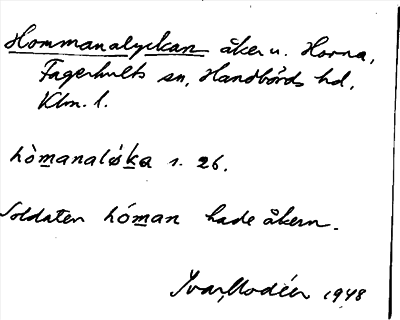 Hommanalyckan åker u. Horna,
Fagerhults sn, Handbörds hd,
Klm. l.
hòmanaløka s. 26.
Soldaten hóman hade åkern.
Ivar Modéer 1948